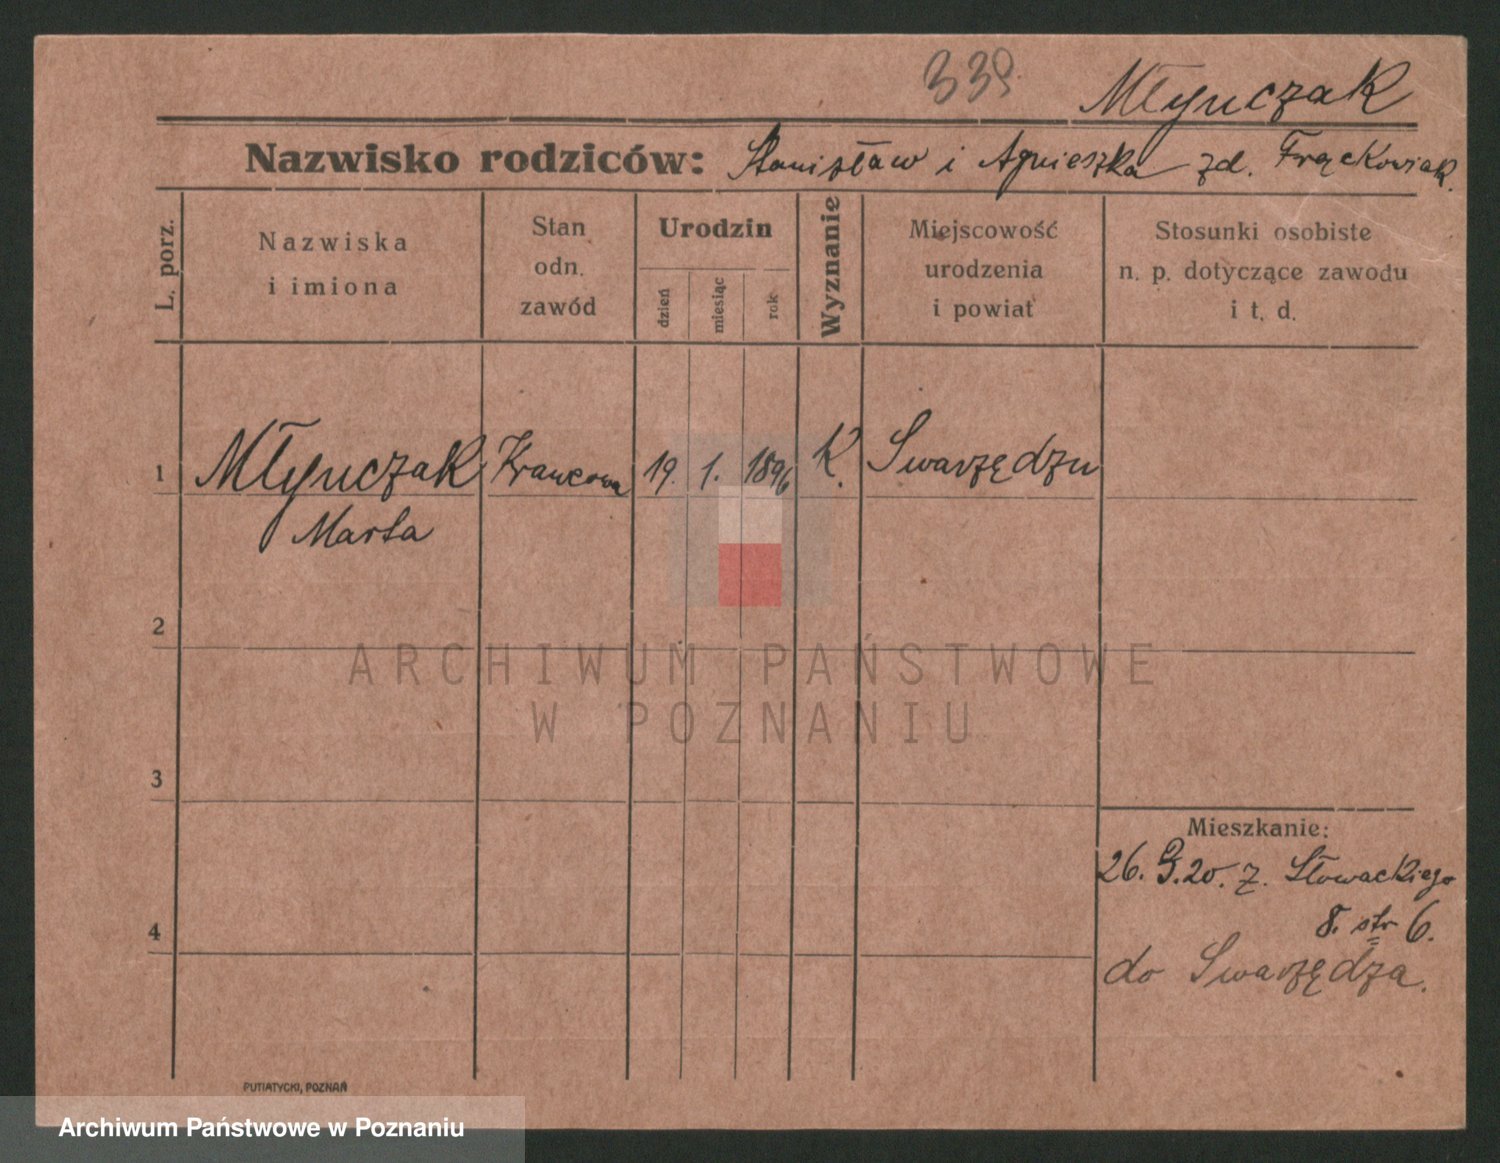 339.
Młynczak
Nazwisko rodziców: Stanisław i Agnieszka zd. Frąckowiak.
L. porz.
Nazwiska
i imiona
Stan
odn.
zawód
Urodzin
dzień
miesiąc
rok
Wyznanie
Miejscowość
urodzenia
i powiat
Stosunki osobiste
n. p. dotyczące zawodu
i t. d.
1 Młynczak Krawcowa 19. 1. 1896 K. Swarzędzu
Marta
2
3
4
Mieszkanie:
26. 9. 20. z. Słowackiego
8. str 6.
do Swarzędza.
PUTIATYCKI, POZNAŃ
ARCHIWUM PAŃSTWOWE
W POZNANIU
Archiwum Państwowe w Poznaniu